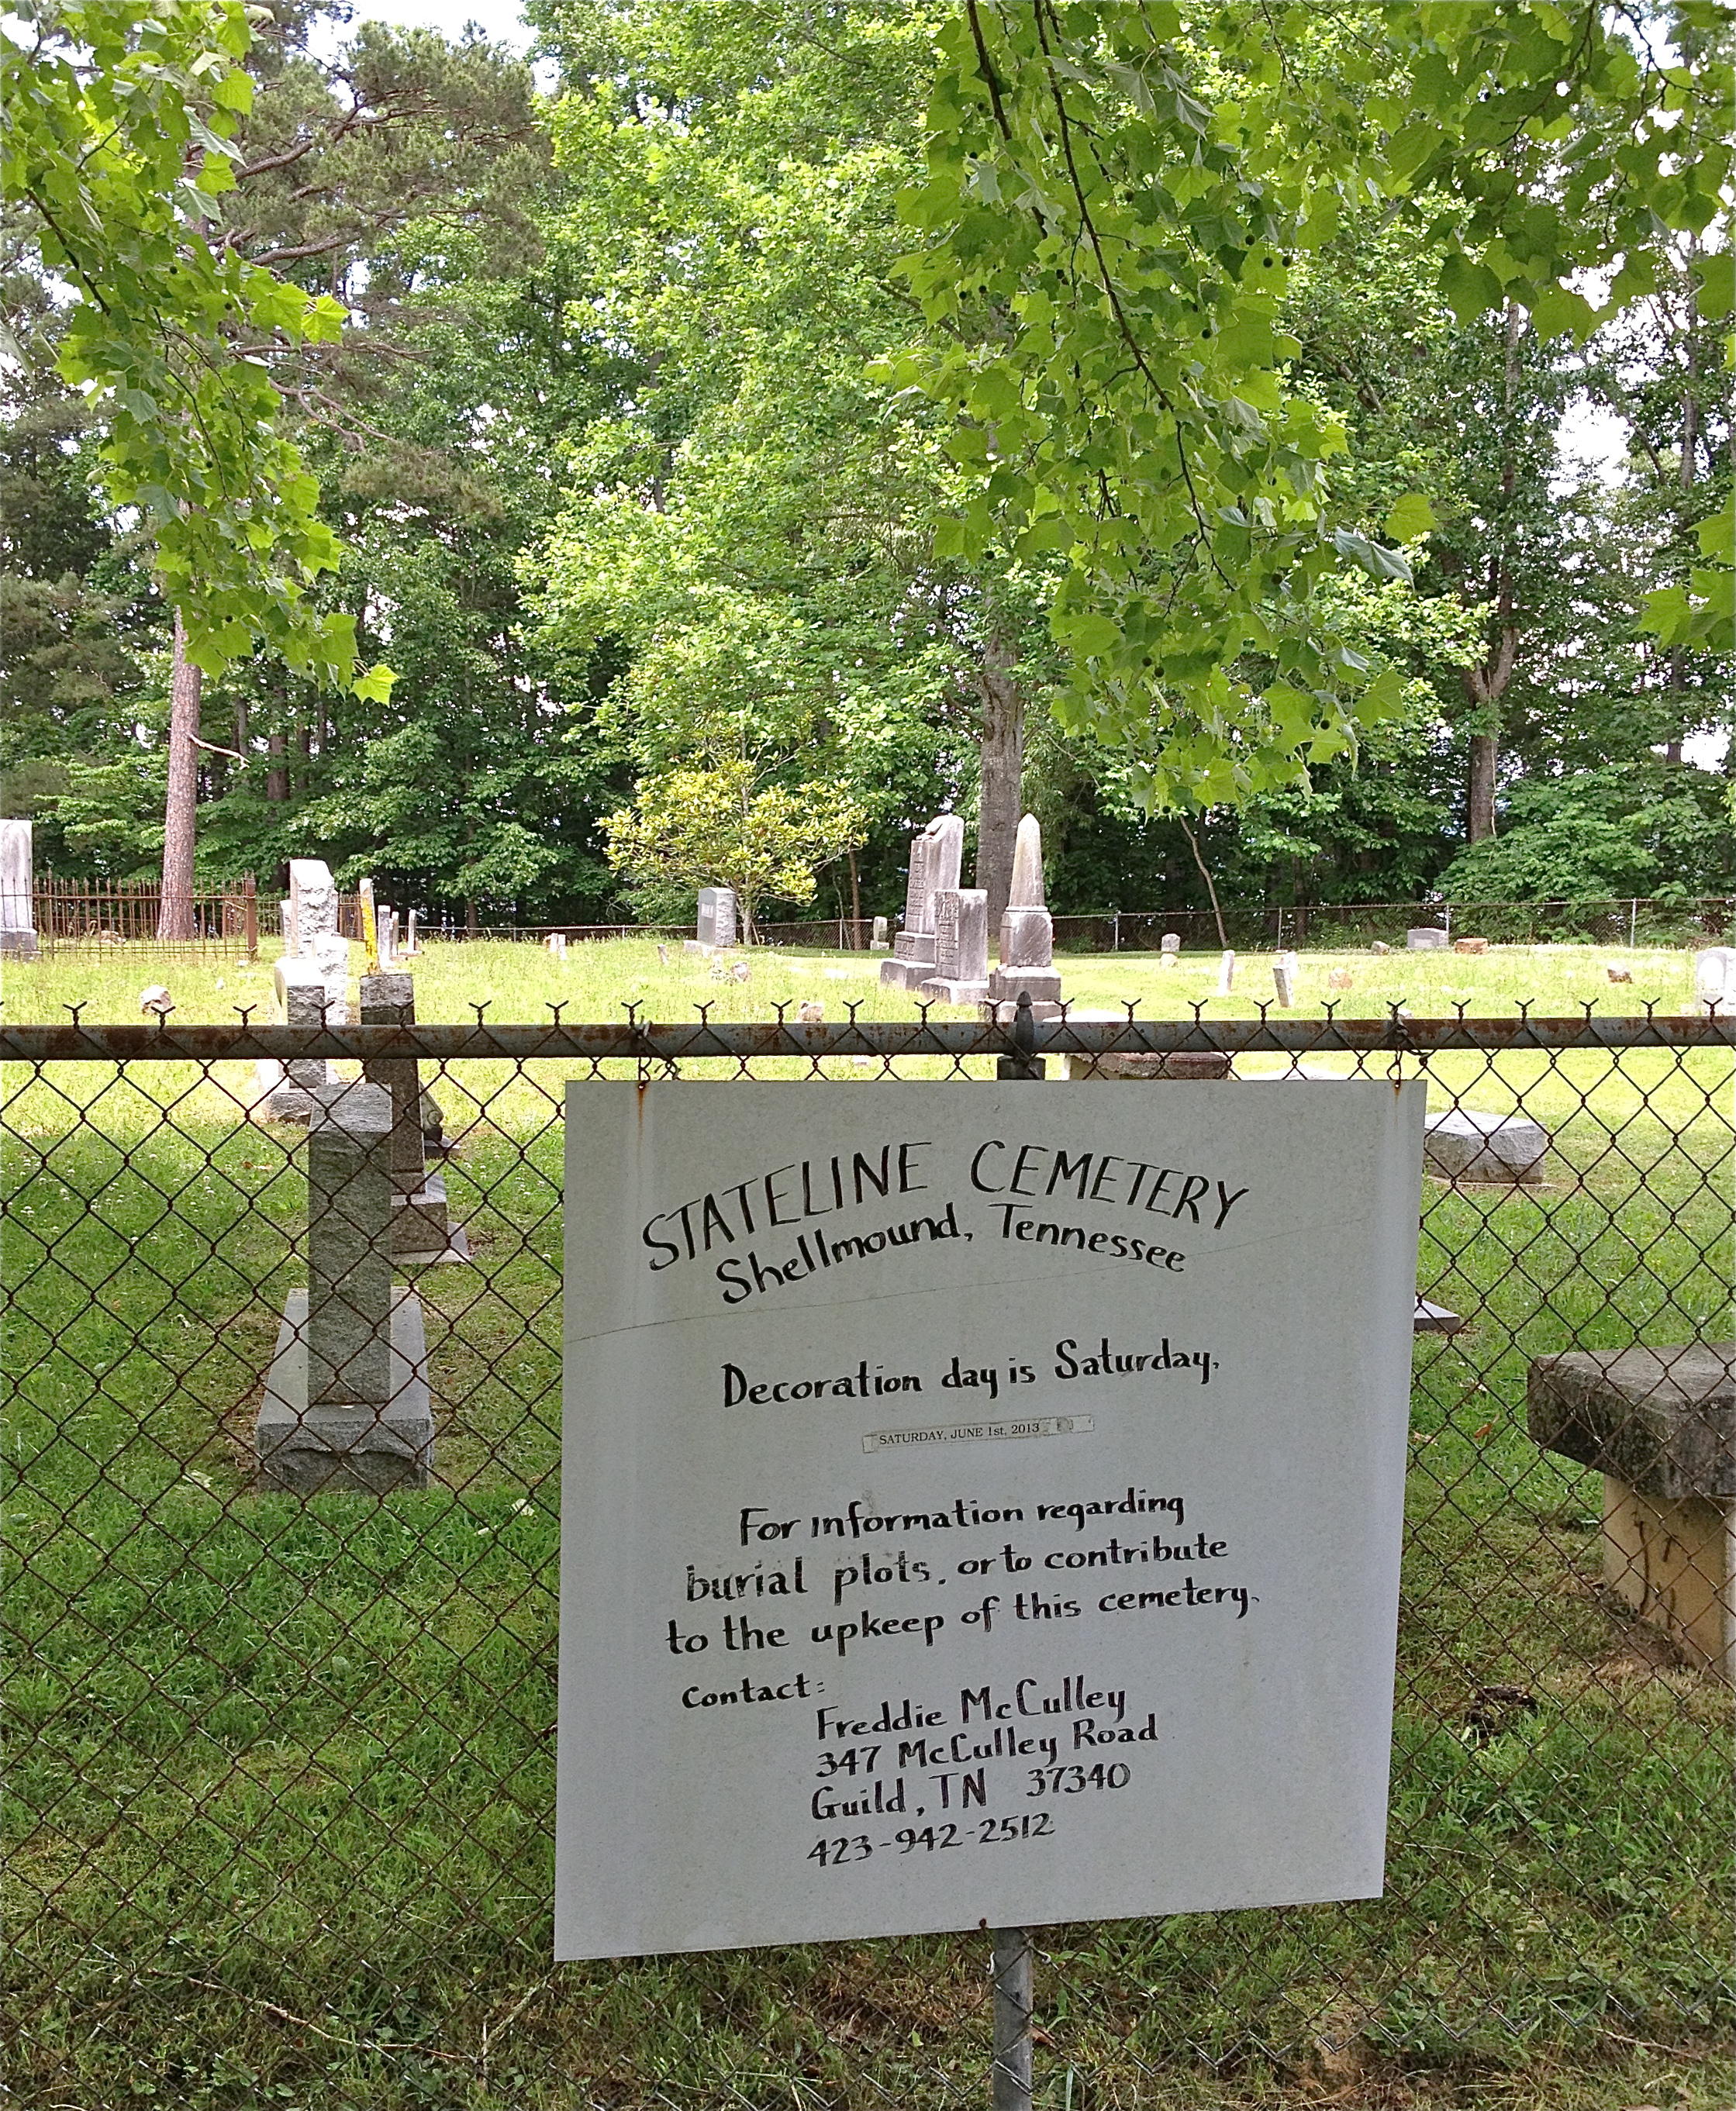 STATELINE CEMETERY
Shellmound, Tennessee
Decoration day is Saturday,
SATURDAY, JUNE 1st, 2013
For information regarding
burial plots, or to contribute
to the upkeep of this cemetery.
Contact:
Freddie McCulley
347 McCulley Road
Guild, TN 37340
423-942-2512